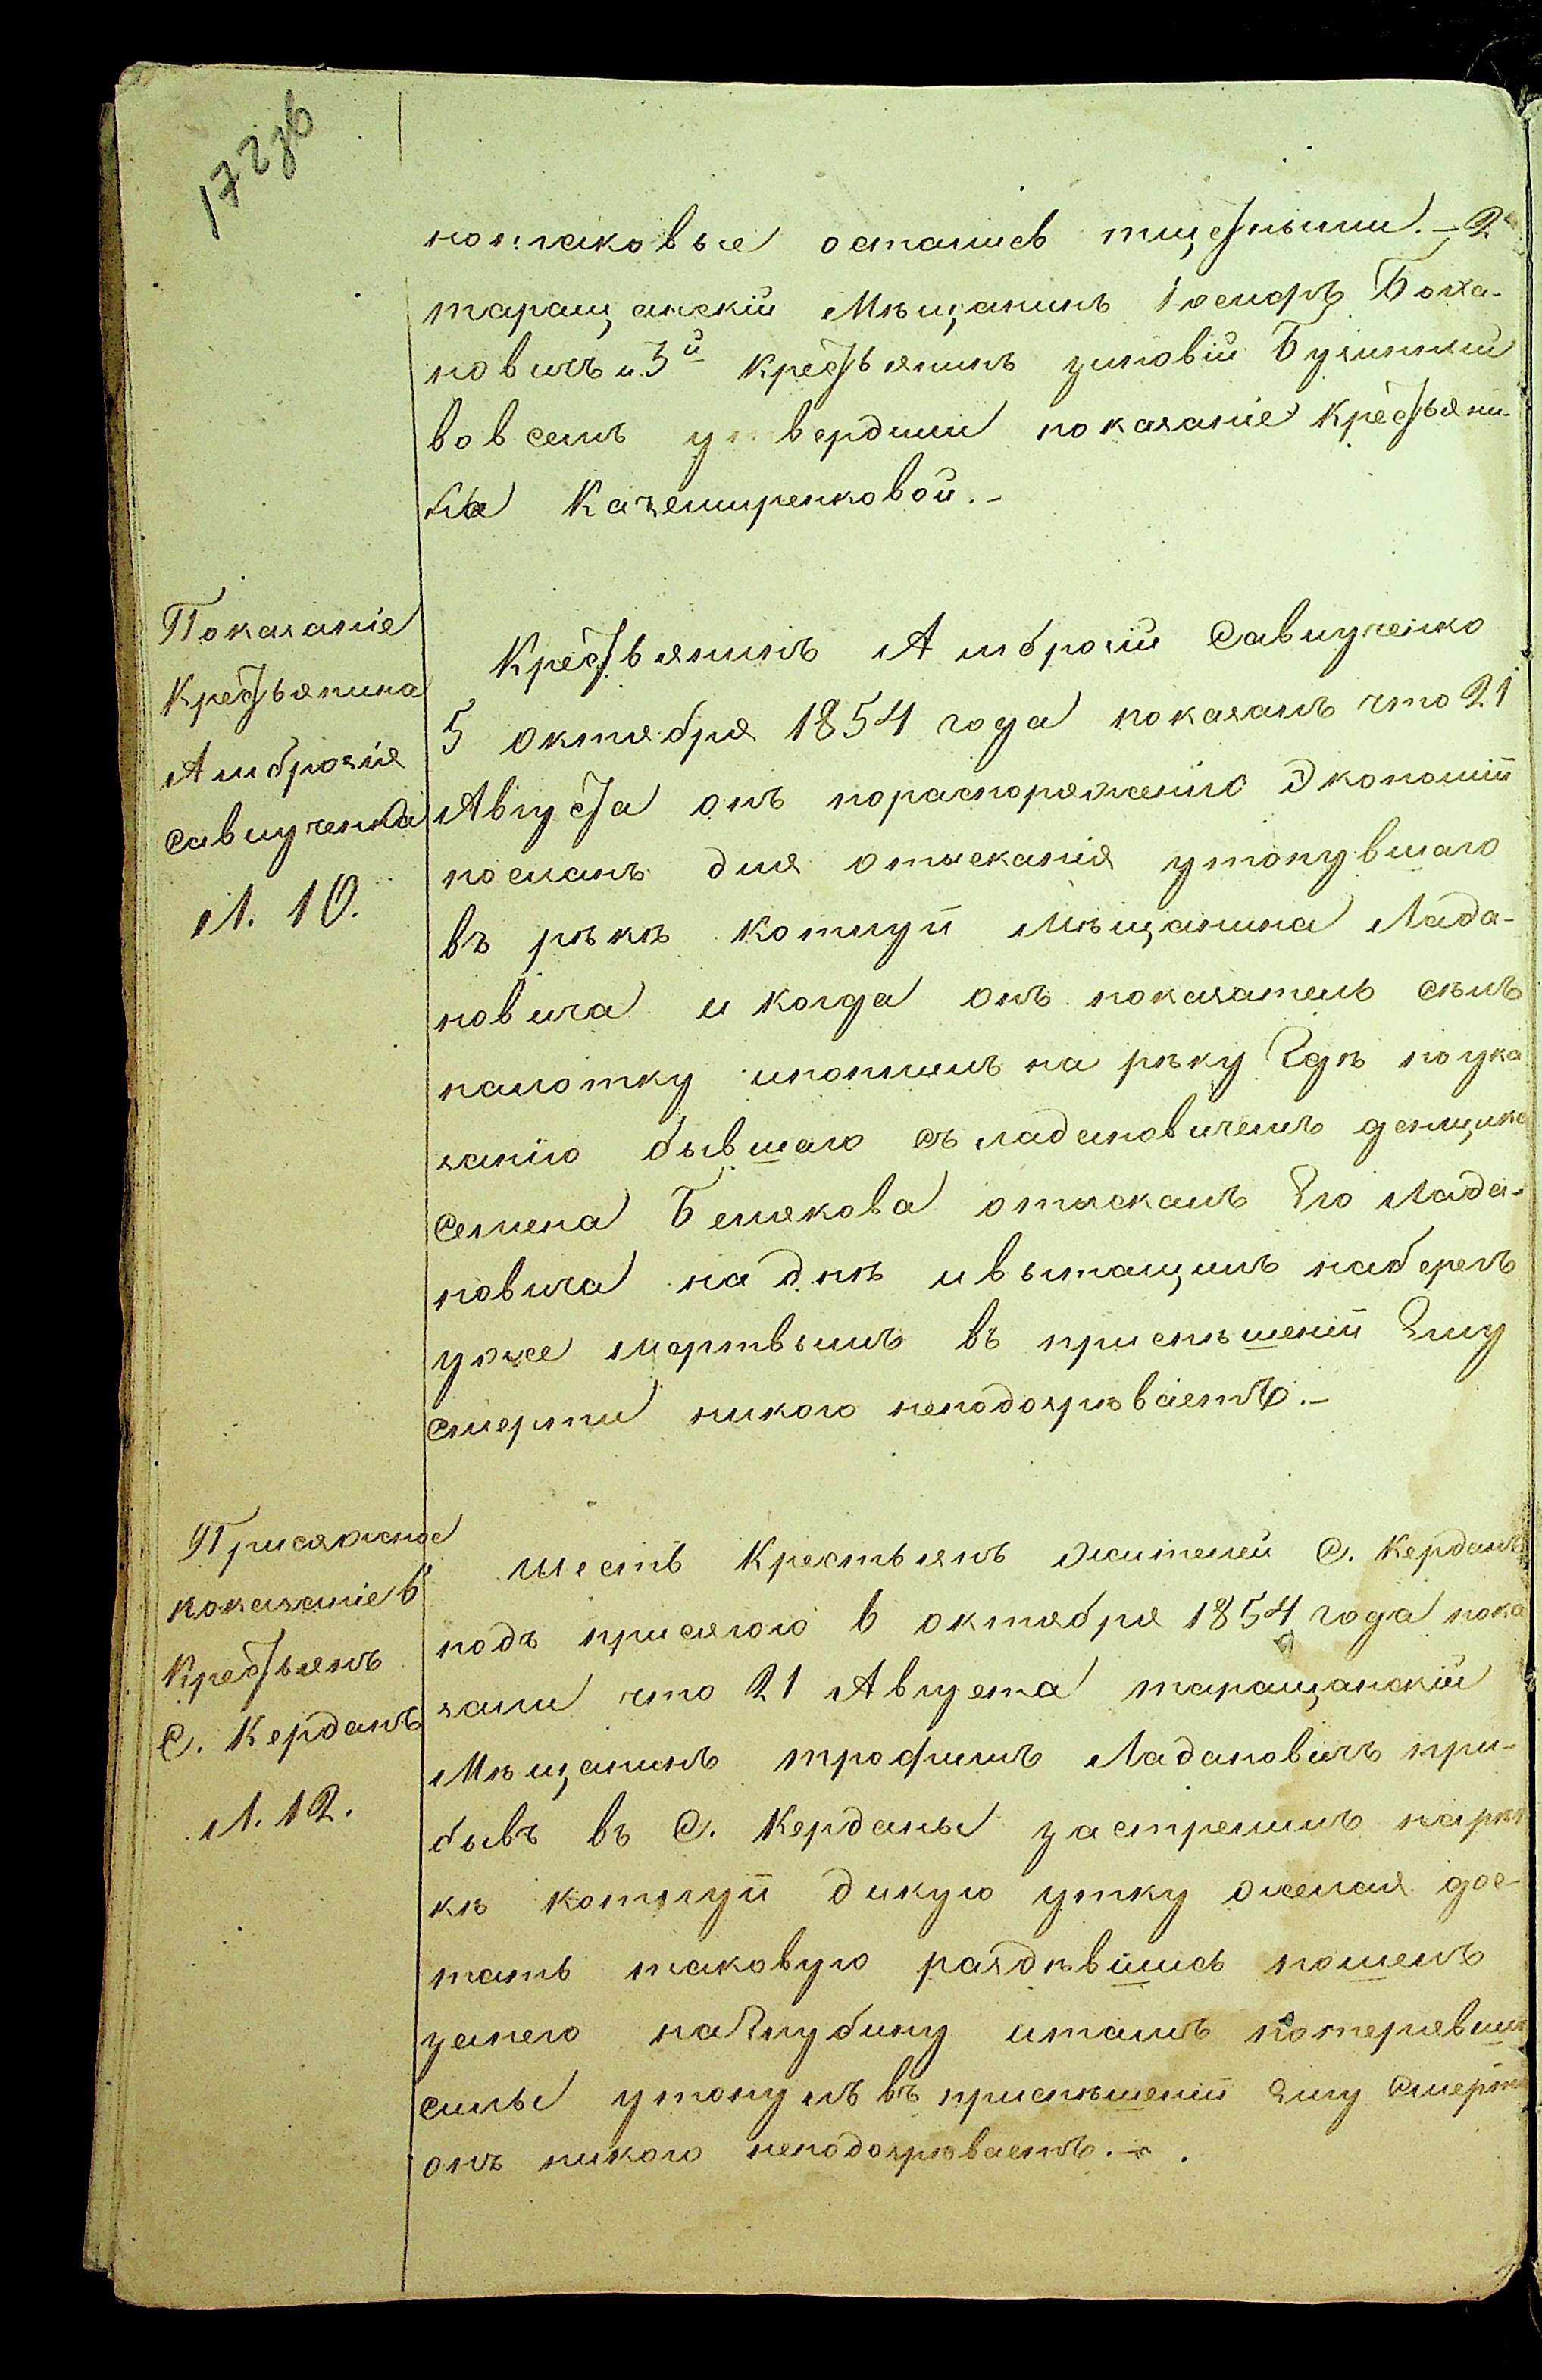 172зв
нотаковые остались тщетными. - 2й
таращанскій Мѣщанинъ Іосифъ Боха-
новичъ и 3й Крестьянинъ зиновій Бузинскій
вовсемъ утвердили показаніе Крестьяни-
на Качемиренковой. -
Показаніе
Крестьянина
Амброзія
Савлученка
Л. 10.
Крестьянинъ Амброзій Савлученко
5 октября 1854 года показалъ что 21
Августа онъ пораспоряженію Экономіи
посланъ для отысканія утонувшаго
въ рѣкѣ Котлуи Мѣщанина Лада-
новича и когда онъ показатель сѣлъ
налотку ипоплылъ на рѣку Гдѣ поука
занію бывшаго съ ладановичемъ денщика
Семена Белякова отыскалъ Его Лада-
новича на днѣ ивытащилъ наберегъ
уже мертвымъ въ приспѣшеніи Ему
смерти никого неподозрѣваетъ. -
Присяжное
показаніе 6
Крестьянъ
С. Керданъ
Л. 12.
шесть Крестьянъ жителей С. Керданъ
подъ присягою 6 октября 1854 года пока
зали что 21 Августа таращанскій
Мѣщанинъ трофимъ Ладановичъ при-
бывъ въ С. Керданы застрелилъ нарѣ
кѣ Котлуи дикую утку желая дос-
тать таковую раздѣвшись пошелъ
занею наГлубину итамъ потерявши
силы утонулъ въ приспѣшеніи Ему Смерти
онъ никого неподозрѣваетъ. -